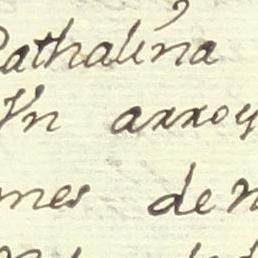 Cathalina
Vn arroy
mes de n